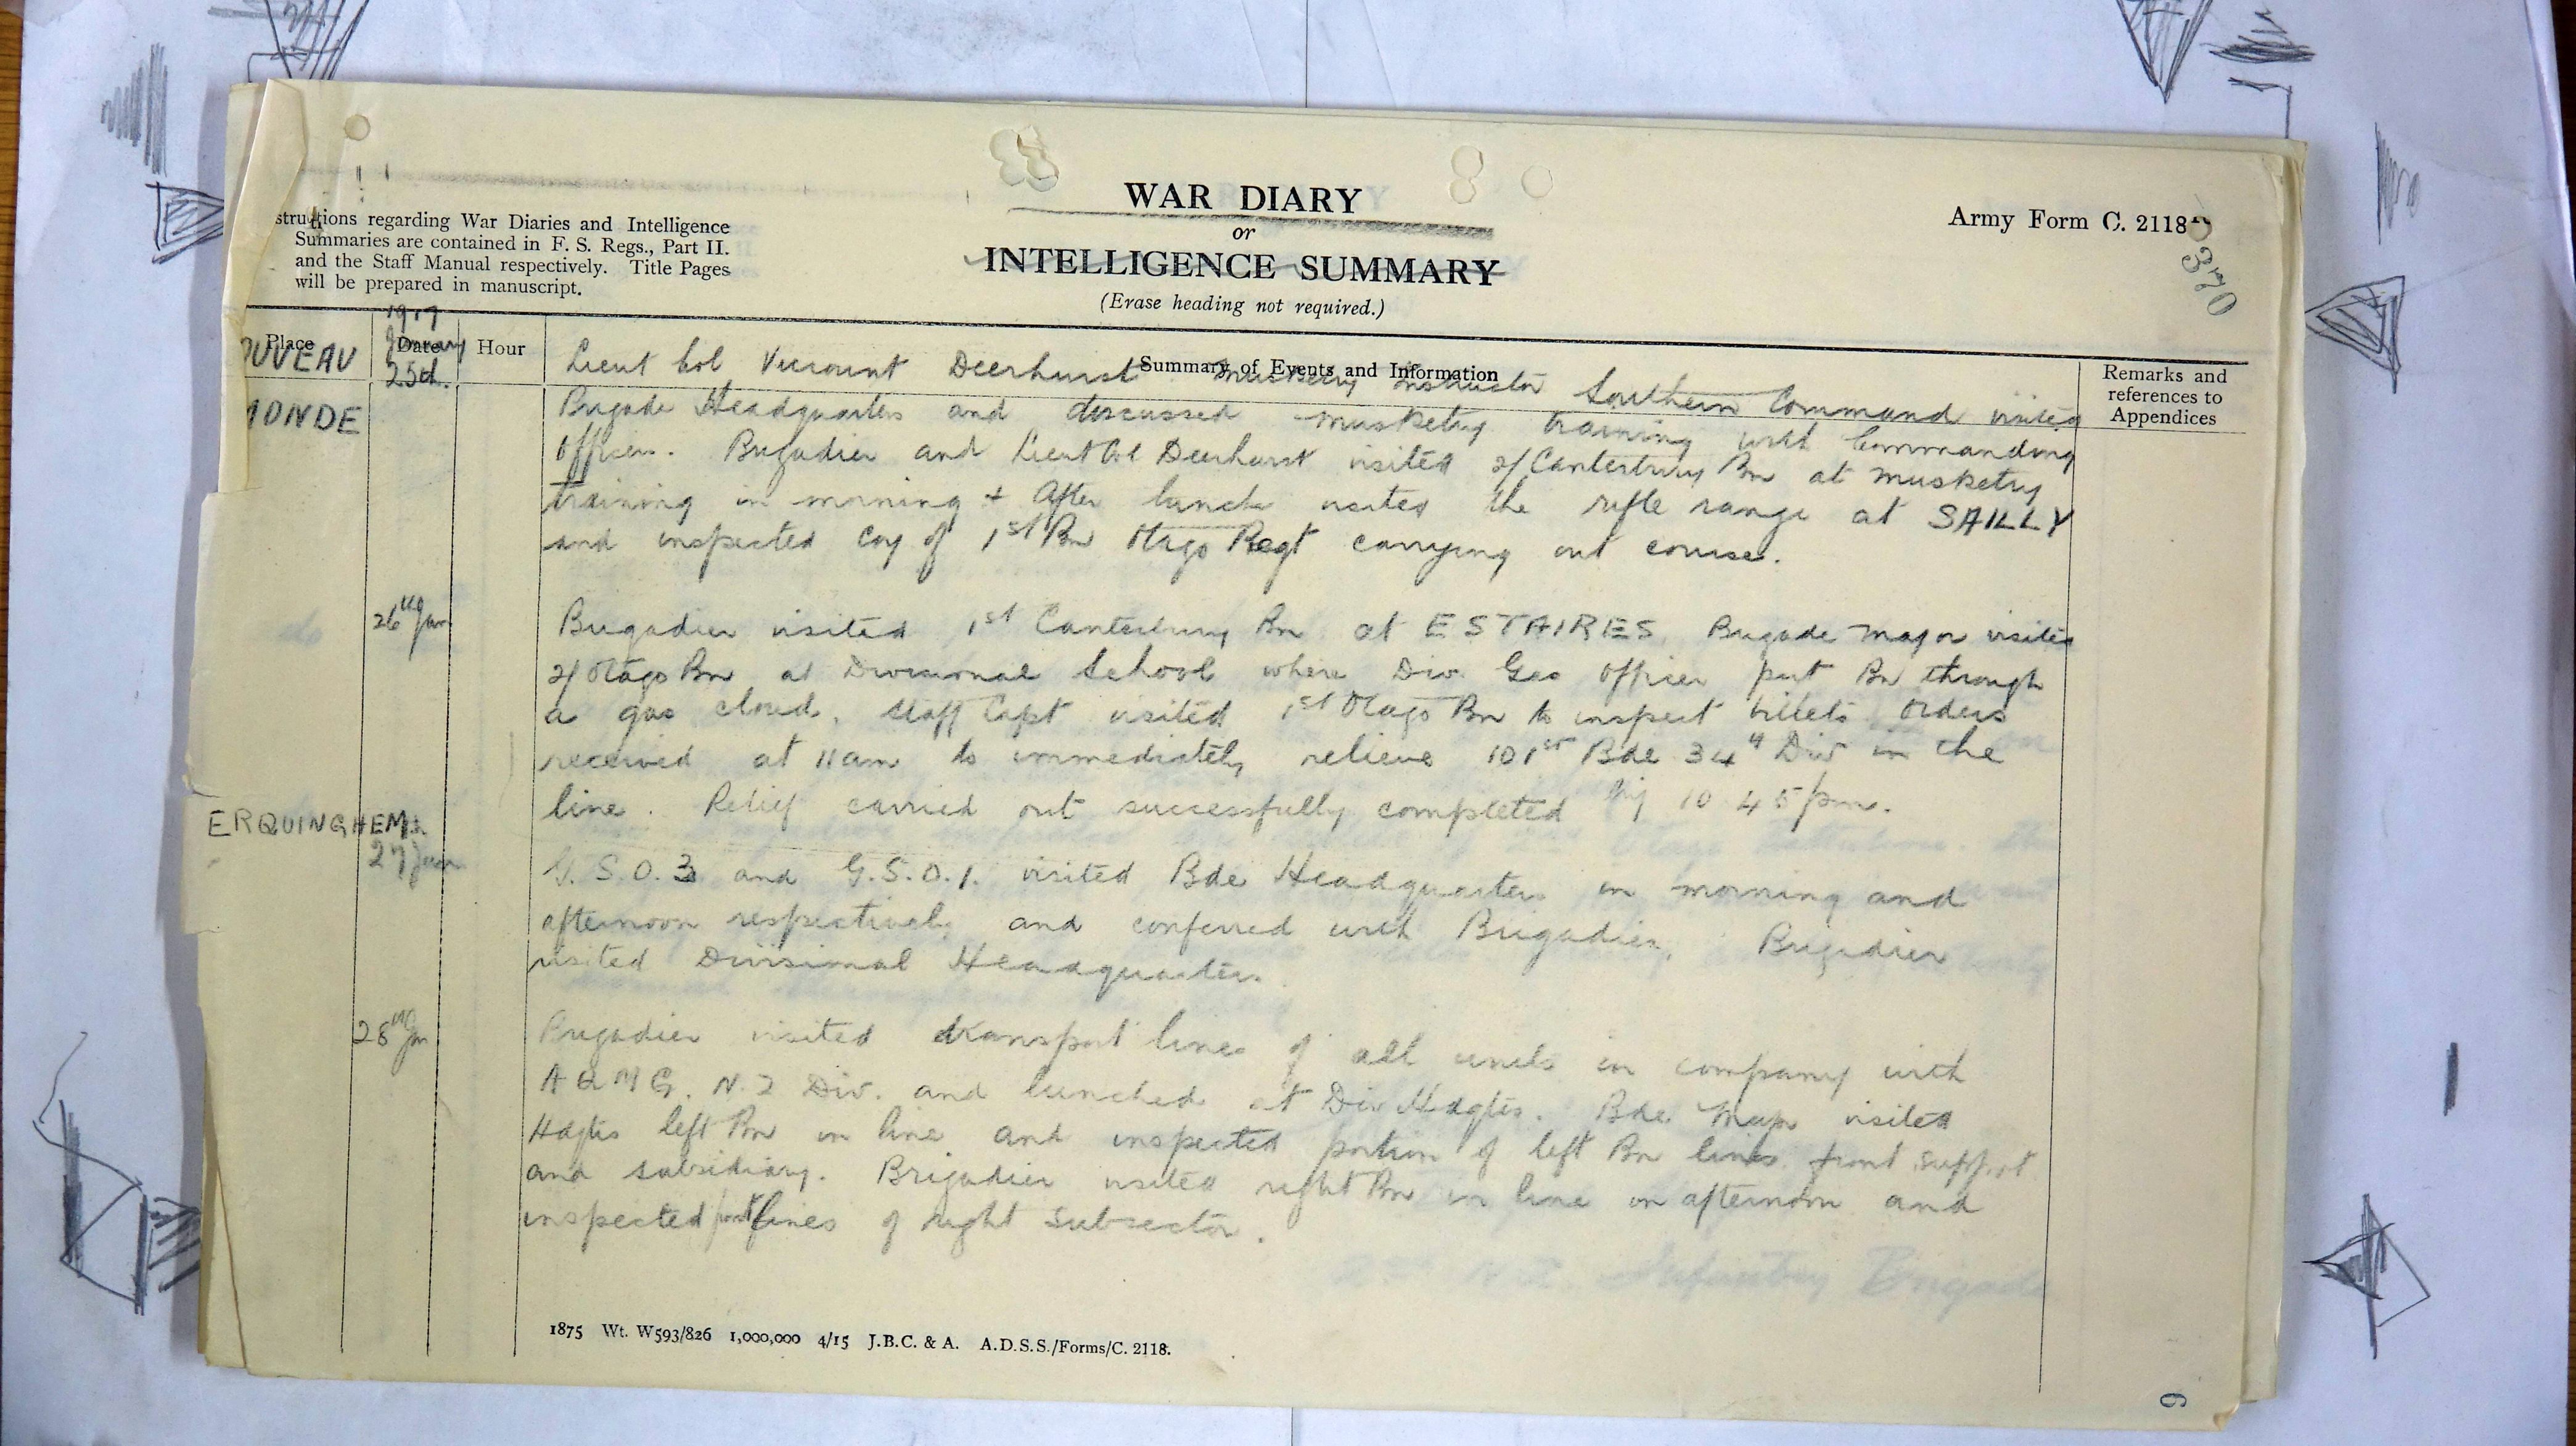 WAR DIARY
or
INTELLIGENCE SUMMARY
(Erase heading not required.)
Army Form C. 2118
370
structions regarding War Diaries and Intelligence
Summaries are contained in F. S. Regs., Part II.
and the Staff Manual respectively. Title Pages
will be prepared in manuscript.
Place
Date
Hour
Summary of Events and Information
Remarks and
references to
Appendices
OUVEAU
MONDE
1917
January
25th.
Lieut Col Viscount Deerhurst Musketry Instructor Southern Command visited
Brigade Headquarters and discussed musketry training with Commanding
Officers. Brigadier and Lieut Col Deerhurst visited 2/Canterbury Bn at musketry
training in morning + After lunch visited the rifle range at SAILLY
and inspected Coy of 1st Bn Otago Regt carrying out course.
do
26th Jan
Brigadier visited 1st Canterbury Bn at ESTAIRES Brigade Major visited
2/Otago Bn at Divisional School where Div. Gas Officer put Bn through
a gas cloud. Staff Capt visited 1st Otago Bn to inspect billets Orders
received at 11am to immediately relieve 101st Bde 34th Div in the
line. Relief carried out successfully completed by 10.45pm.
ERQUINGHEM
27 Jan
G.S.O.3 and G.S.O.1. visited Bde Headquarters in morning and
afternoon respectively and conferred with Brigadier. Brigadier
visited Divisional Headquarters
28th Jan
Brigadier visited transport lines of all units in company with
AQMG. N.Z Div. and lunched at Div Hdqtrs. Bde Major visited
Hdqtrs left Bn in line and inspected portion of left Bn lines front support
and subsidiary. Brigadier visited right Bn in line in afternoon and
inspected part lines of right subsector.
N.Z. Infantry Brigade
1875 Wt. W593/826 1,000,000 4/15 J.B.C. & A. A.D.S.S./Forms/C. 2118.
6